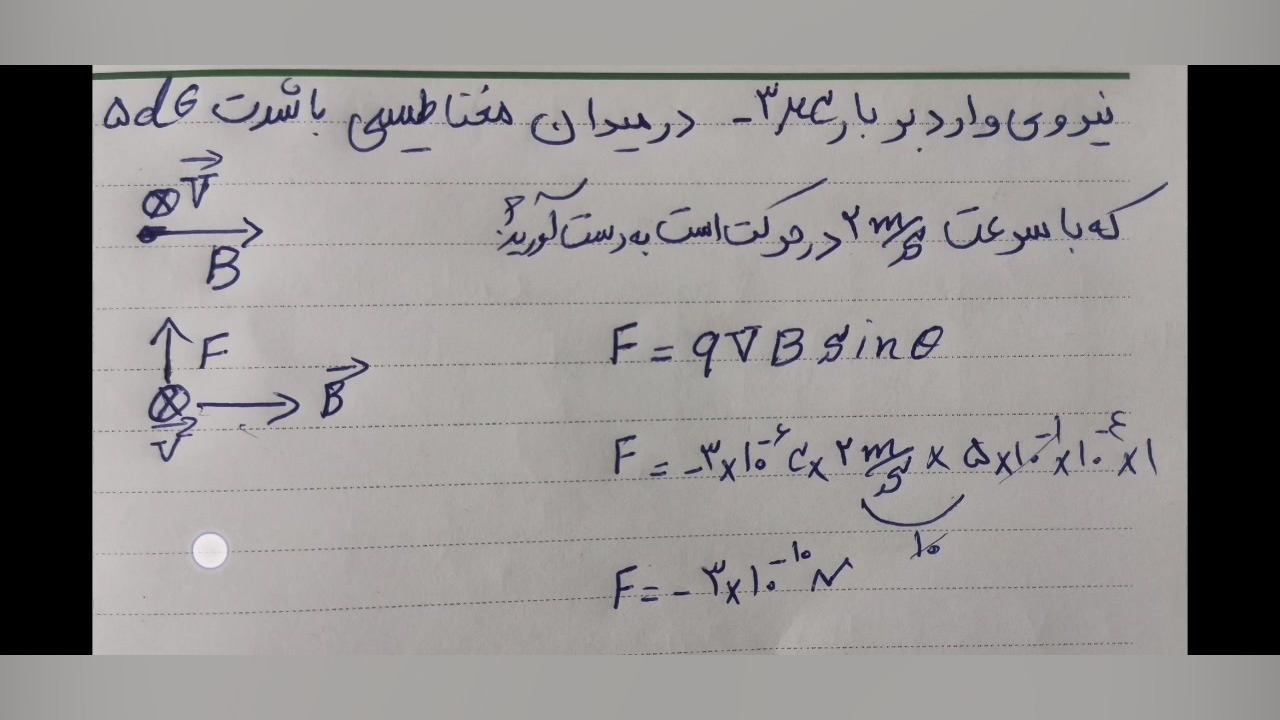 نیروی وارد بر بار -۳μC در میدان مغناطیسی با شدت ۵dG
که با سرعت ۲ m/s در حرکت است به دست آورید؟
V
B
F = qVB sinθ
F
B
V
F = -۳×۱۰^-۶ C × ۲ m/s × ۵×۱۰^-۱×۱۰^-۴×۱
۱۰
F = -۳×۱۰^-۱۰ N